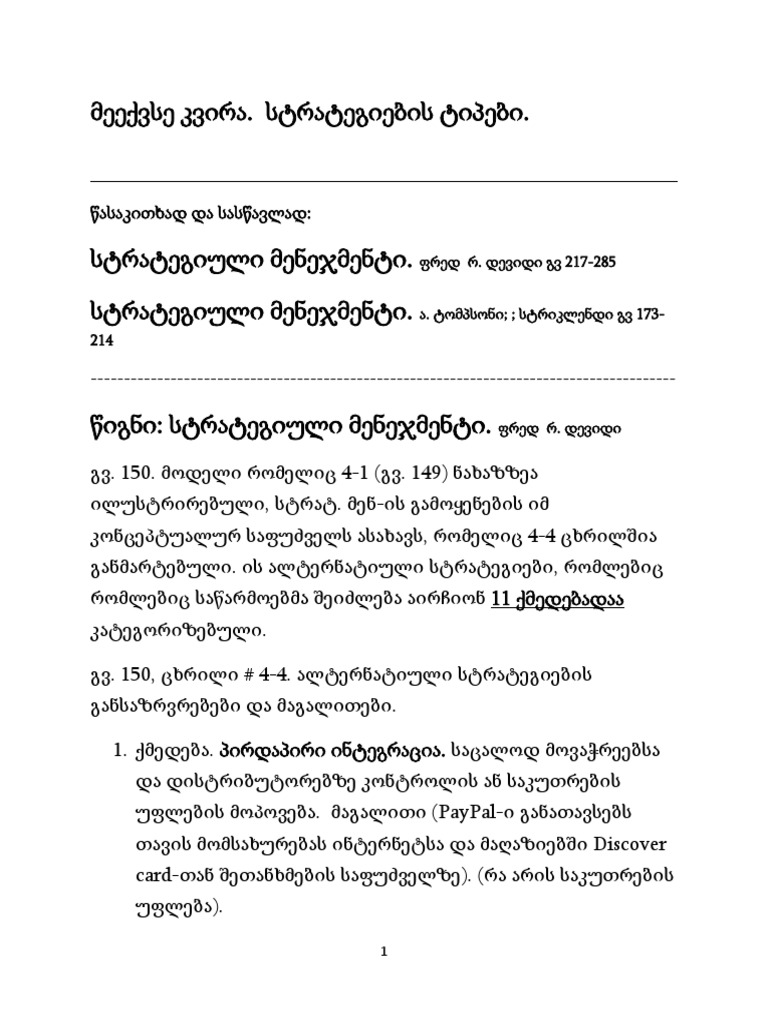 მეექვსე კვირა. სტრატეგიების ტიპები.
წასაკითხად და სასწავლად:
სტრატეგიული მენეჯმენტი. ფრედ რ. დევიდი გვ 217-285
სტრატეგიული მენეჯმენტი. ა. ტომპსონი; ; სტრიკლენდი გვ 173-
214
წიგნი: სტრატეგიული მენეჯმენტი. ფრედ რ. დევიდი
გვ. 150. მოდელი რომელიც 4-1 (გვ. 149) ნახაზზეა
ილუსტრირებული, სტრატ. მენ-ის გამოყენების იმ
კონცეპტუალურ საფუძველს ასახავს, რომელიც 4-4 ცხრილშია
განმარტებული. ის ალტერნატიული სტრატეგიები, რომლებიც
რომლებიც საწარმოებმა შეიძლება აირჩიონ 11 ქმედებადაა
კატეგორიზებული.
გვ. 150, ცხრილი # 4-4. ალტერნატიული სტრატეგიების
განსაზრვრებები და მაგალითები.
1. ქმედება. პირდაპირი ინტეგრაცია. საცალოდ მოვაჭრეებსა
და დისტრიბუტორებზე კონტროლის ან საკუთრების
უფლების მოპოვება. მაგალითი (PayPal-ი განათავსებს
თავის მომსახურებას ინტერნეტსა და მაღაზიებში Discover
card-თან შეთანხმების საფუძველზე). (რა არის საკუთრების
უფლება).
1